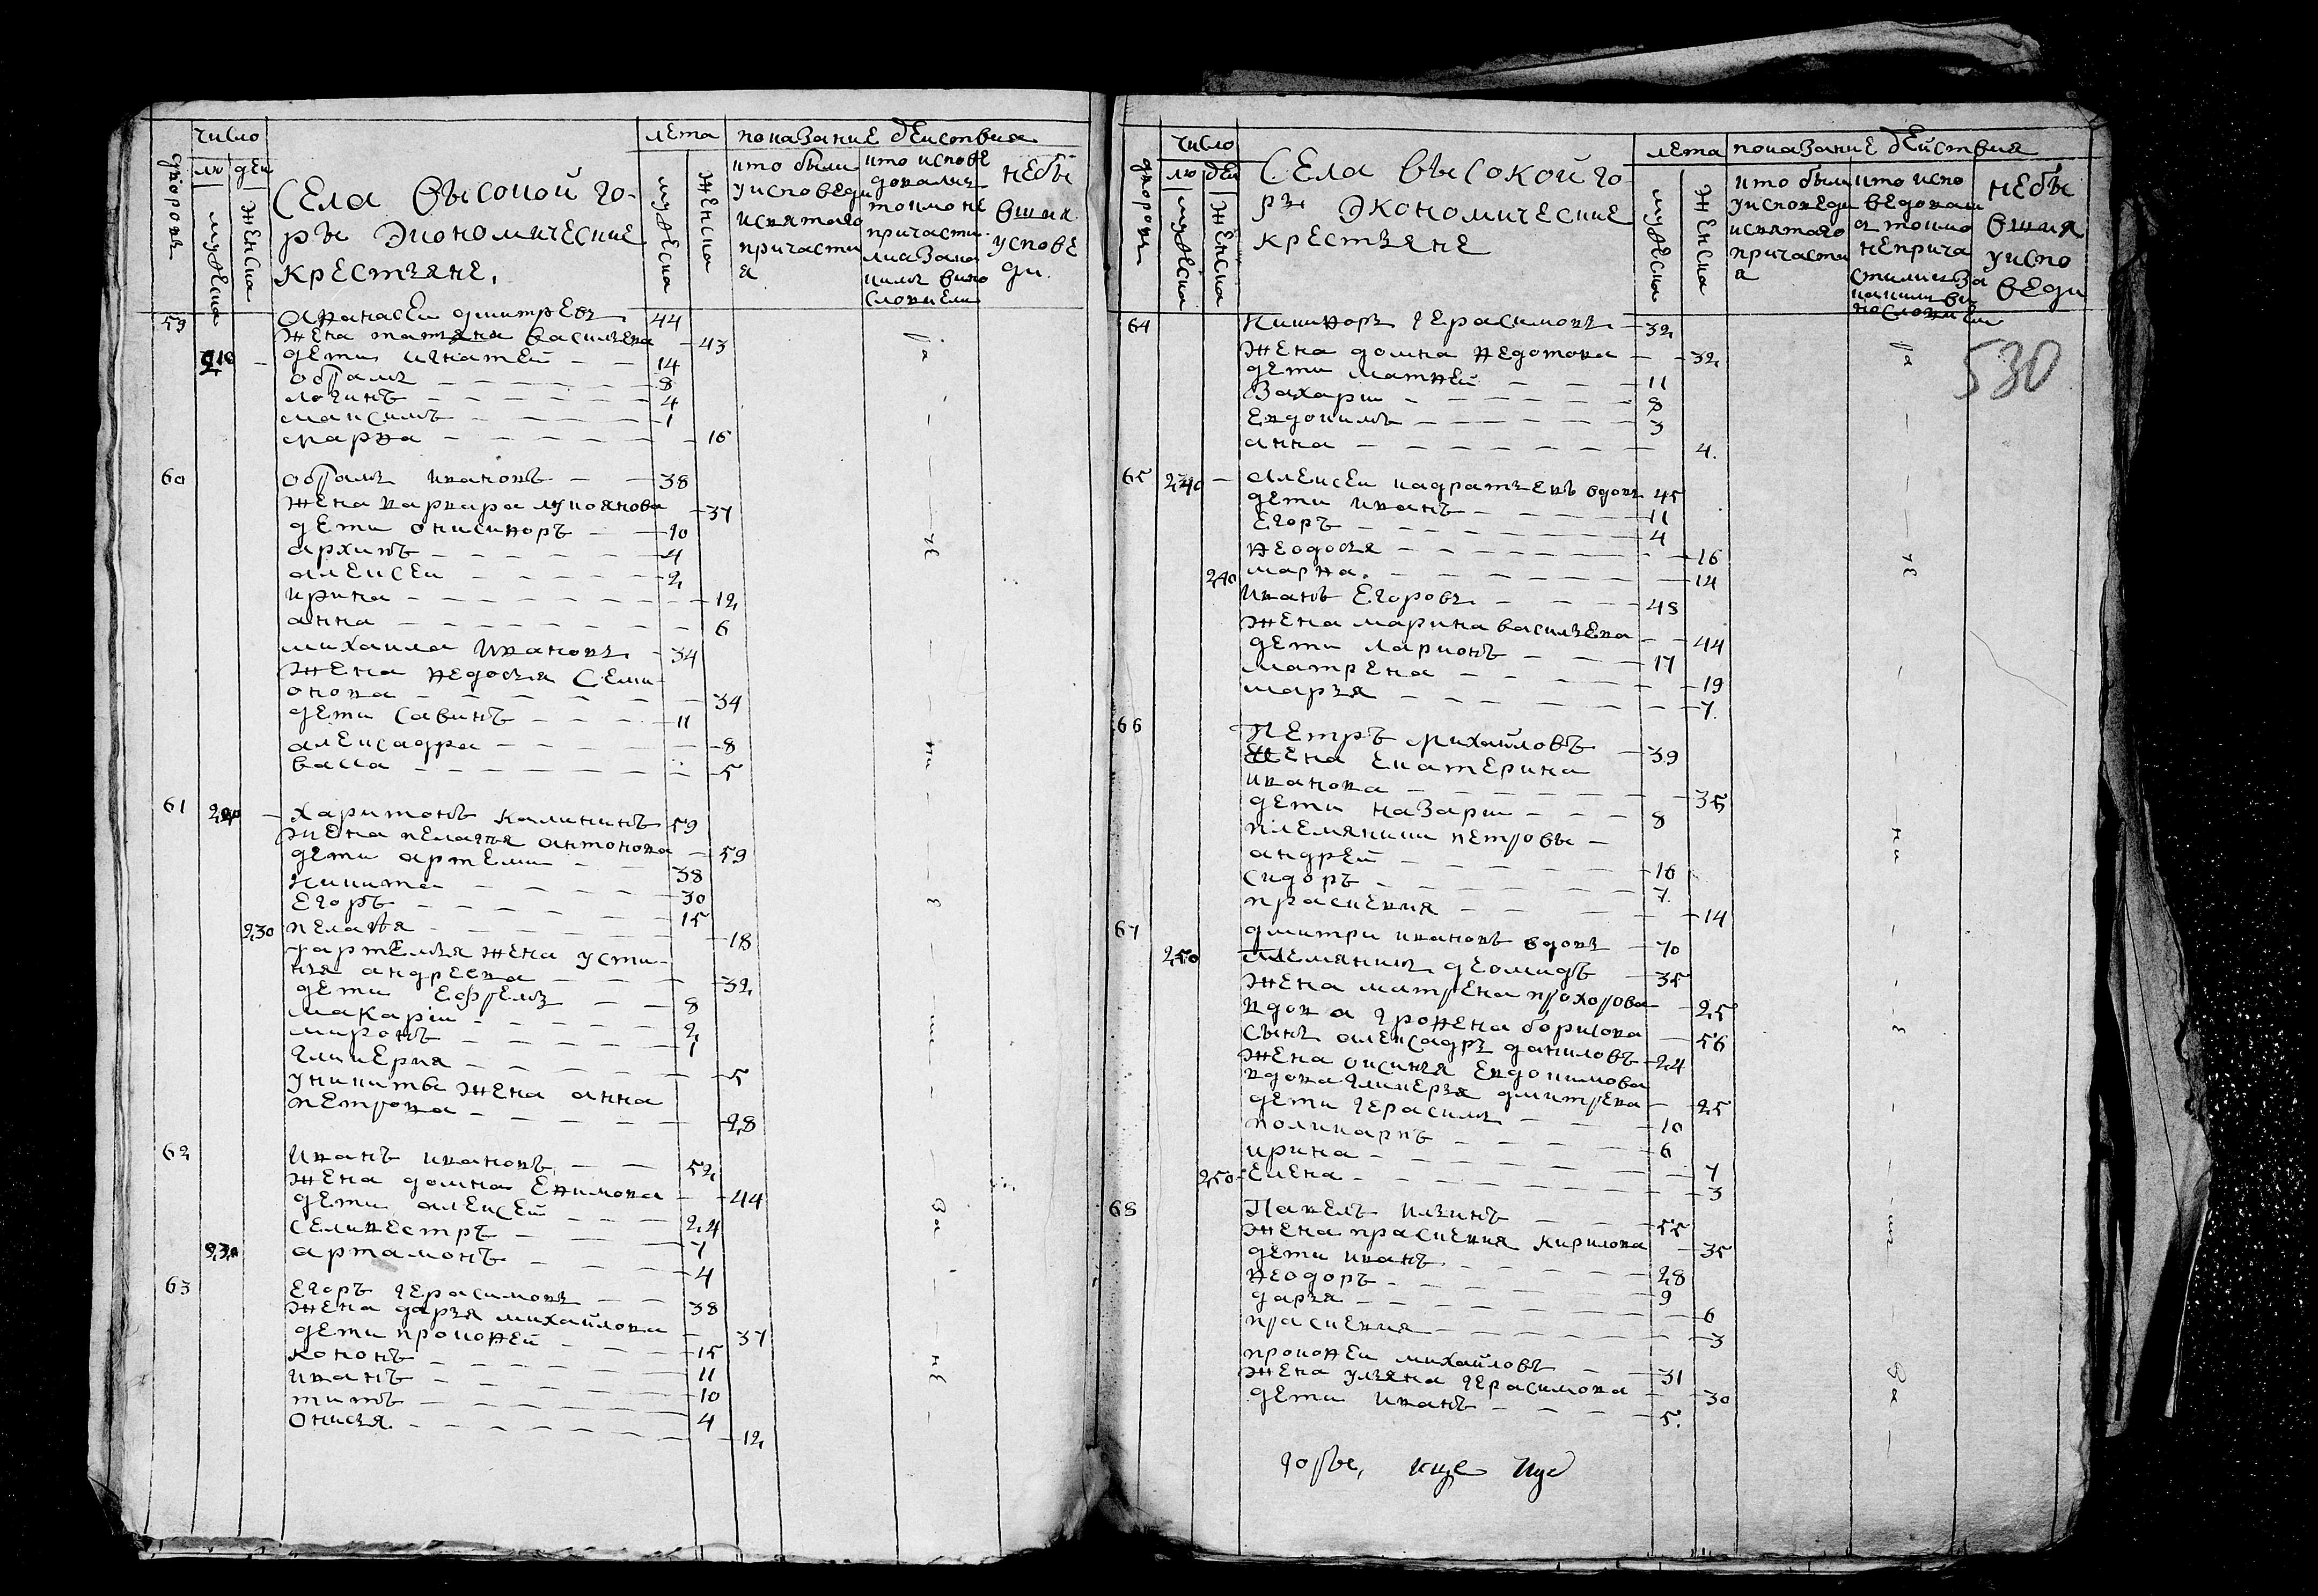 число
лета показание действия
дворовъ
лю ден
мужеска
женска
мужеска
женска
Села высокой го-
ры экономические
крестьяне,
кто были
у исповеди
и святаго
причасти
я
кто испове
довализ
токмо не
причасти
лиз и за ка
ким вино
словием
небы
вших
у испове
ди.
59 Афанасеи дмитревъ 44
жена татяна василева 43
дети игнатей 14
обрамъ 8
логинъ 4
максимъ 1
марфа 16
60 обрамъ ивановъ 38
жена варвара лукоянова 37
дети онисифоръ 10
архипъ 4
алексеи 2
ирина 12
анна 6
михаила Ивановъ 34
жена федосья Семи
онова 34
дети Савинъ 11
алексадра 8
васса 5
61 харитонъ калининъ 59
жена пелагѣя антонова 59
дети артеми 38
никита 30
егоръ 15
230 пелагѣя 18
уартемья жена усти-
нья андреева 32
дети ефремъ 8
макари 2
миронъ 1
гликерия 5
уникиты жена анна
петрова 28
62 Иванъ ивановъ 52
жена домна ефимова 44
дети алексей 24
селивестръ 7
артамонъ 4
63 Егоръ герасимовъ 38
жена дарья михайлова 37
дети прокофей 15
кононъ 11
иванъ 10
титъ 4
онисья 12
число
лета показание действия
дворовъ
лю ден
мужеска
женска
мужеска
женска
Села высокой го
ры экономические
крестьяне
кто были
у исповеди
и святаго
причасти
я
кто испо
ведовали
а токмо
неприча
стилис и за
каким ви
нословием
небы
вших
у испо
веди
530
64 Никифоръ герасимовъ 32
жена домна федотова 32
дети матфей 11
захари 8
евдокимъ 3
анна 4.
65 240 Алексеи кадратьевъ вдовъ 45
дети иванъ 11
егоръ 4
феодосья 16
240 марфа 14
Иванъ Егоровъ 48
жена марина василева 44
дети ларионъ 17
матрена 19
марья 7.
66 Петръ михайловъ 39
жена екатерина
иванова 35
дети назари 8
племяники петровы
андрей 16
сидоръ 7.
прасковия 14
67 дмитри ивановъ вдовъ 70
250 племяникъ деомидъ 35
жена матрена прохорова 25
вдова грофена борисова 56
сынъ алексадръ даниловъ 24
жена оксинья евдокимова
вдова гликерья дмитрева 25
дети герасимъ 10
поликарпъ 6
ирина 7
250 елена 3
68 Павелъ ильинъ 55
жена прасковия кирилова 35
дети иванъ 28
феодоръ 9
дарья 6
прасковия 3
прокофеи михайловъ 31
жена ульяна герасимова 30
дети иванъ 5.